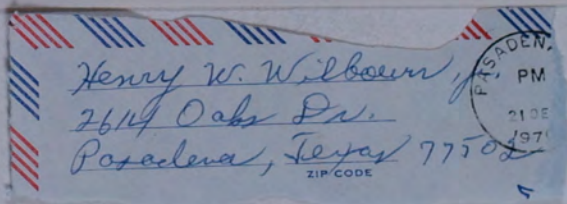 Henry W. Wilbourn, Jr.
2614 Oaks Dr.
Pasadena, Texas 77502
ZIP CODE
PASADEN
PM
21 DE
197